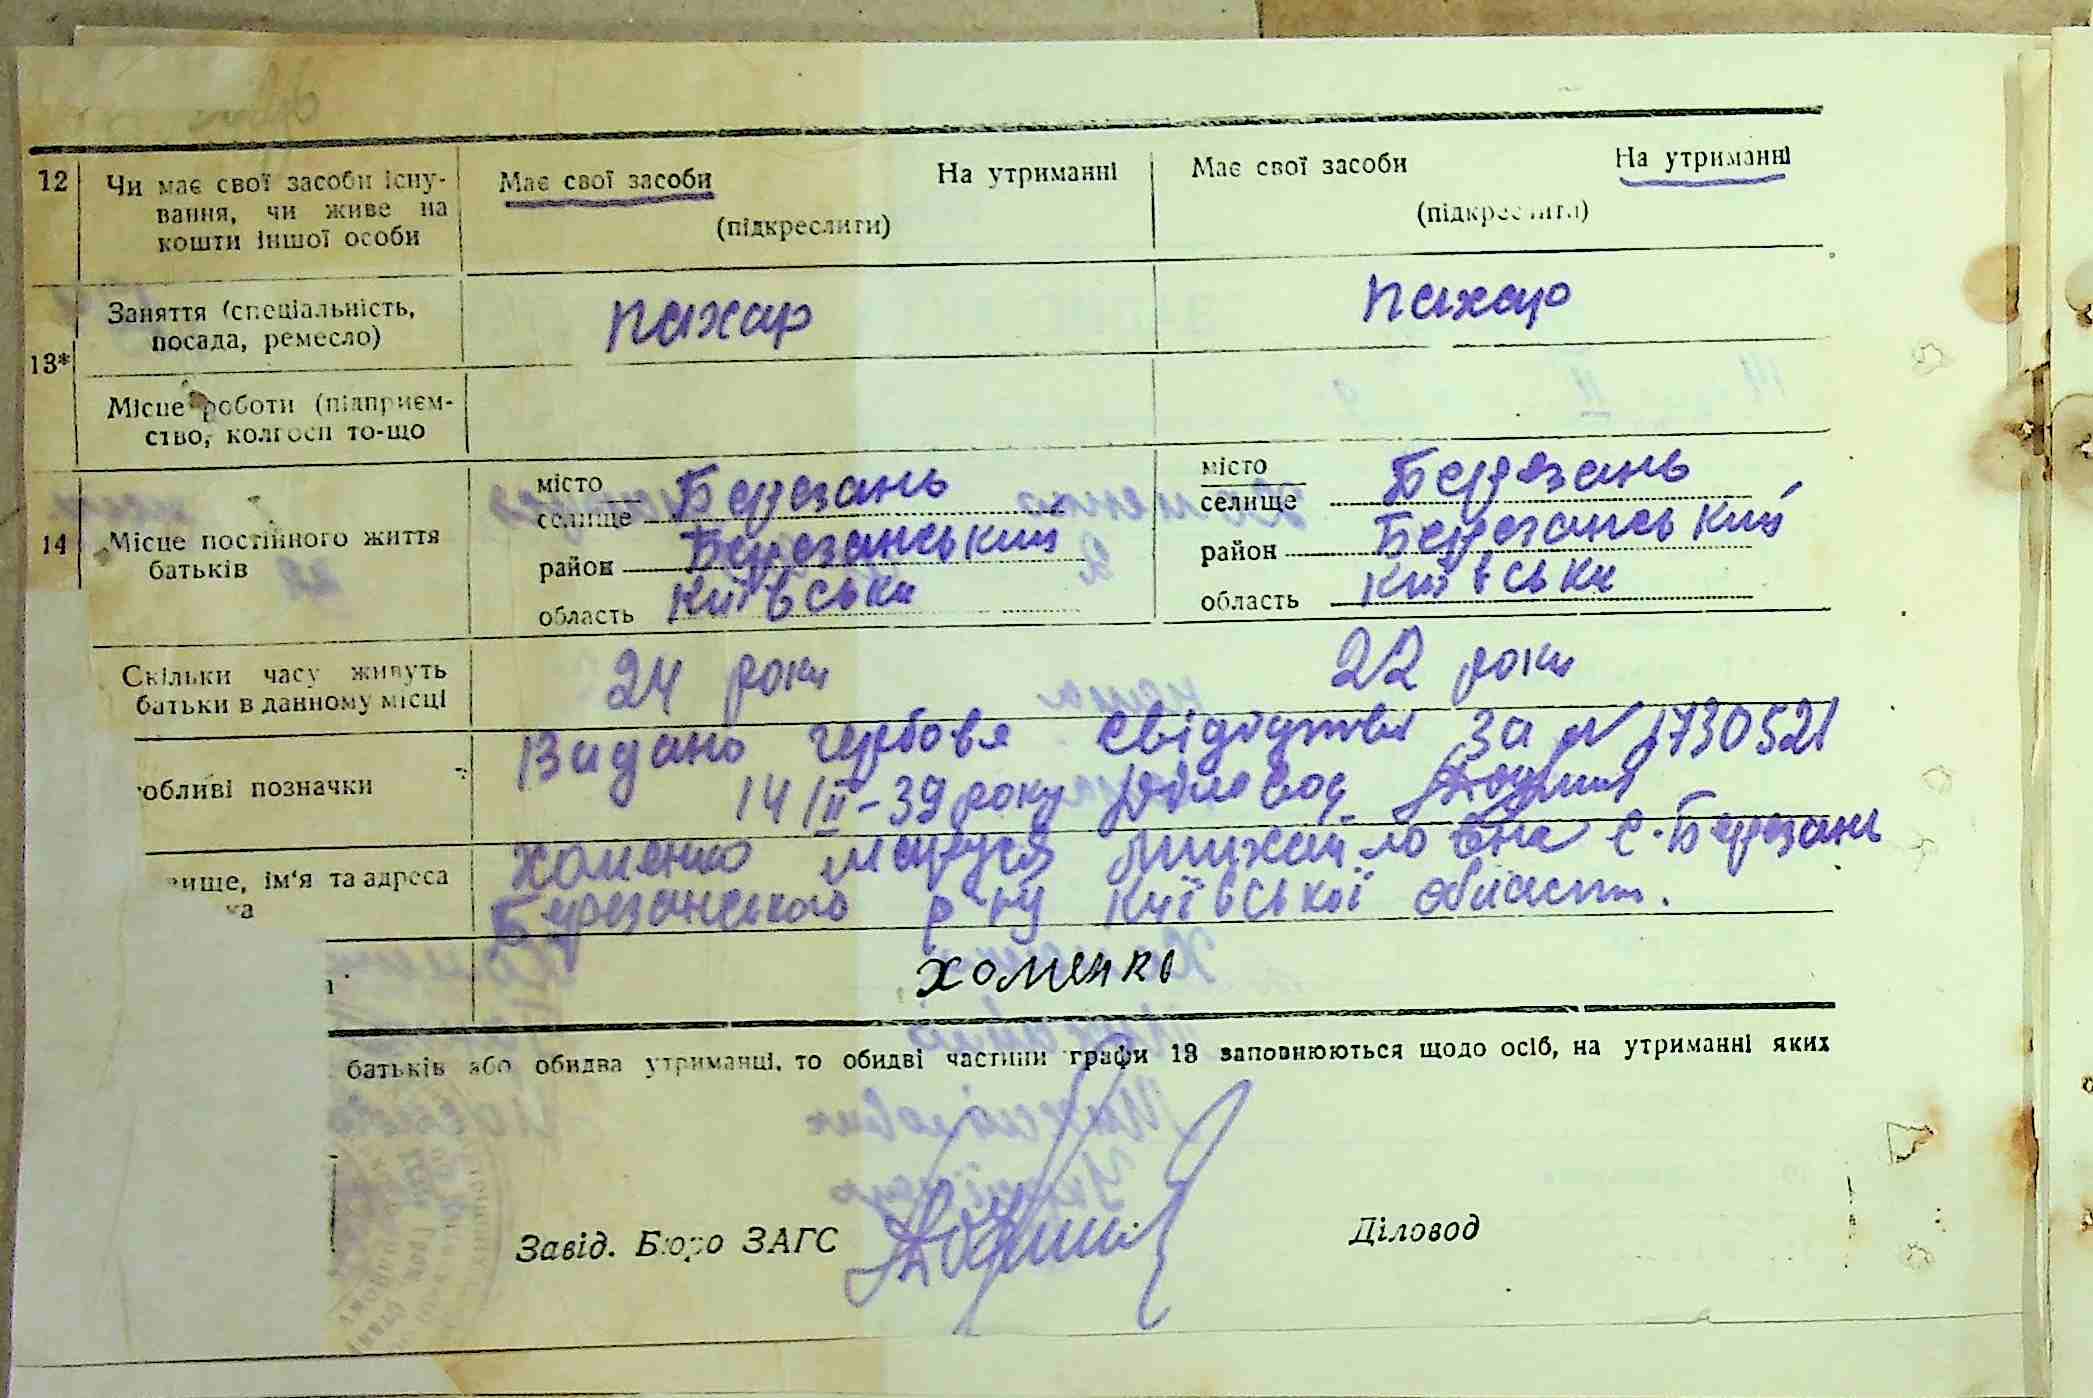 12 Чи має свої засоби існу- Має свої засоби На утриманні Має свої засоби На утриманні
вання, чи живе на (підкреслити) (підкреслити)
кошти іншої особи
13* Заняття (спеціальність, пахар пахар
посада, ремесло)
Місце роботи (підприєм-
ство, колгосп то-що
14 Місце постійного життя батьків
місто Березань місто Березань
селище селище
район Березанський район Березанський
область Київська область Київська
Скільки часу живуть 24 роки 22 роки
батьки в данному місці
обливі позначки Видано гербове свідоцтво за № 1730521
14/II-39 року Діловод
вище, ім'я та адреса Хоменко Маруся Михайловна с. Березань
ка Березанського р-ну Київської області.
Хоменко
батьків або обидва утриманці, то обидві частини графи 13 заповнюються щодо осіб, на утриманні яких
Завід. Бюро ЗАГС Діловод